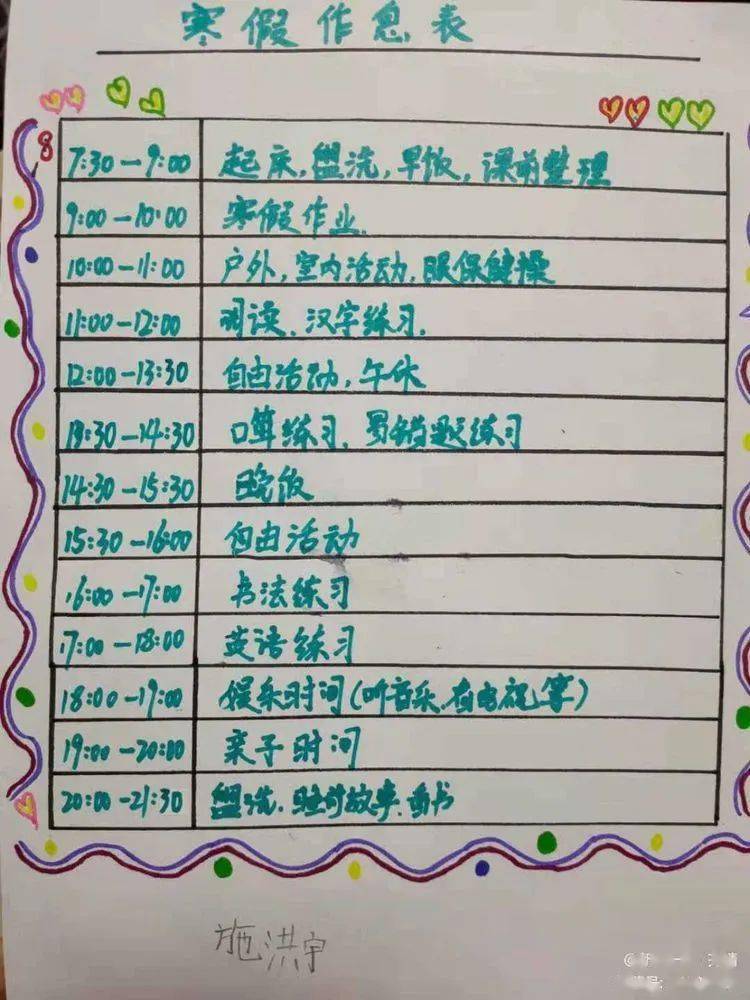 寒假作息表
8
7:30—9:00 起床,盥洗,早饭,课前整理
9:00—10:00 寒假作业.
10:00—11:00 户外,室内活动,眼保健操
11:00—12:00 阅读.汉字练习.
12:00—13:30 自由活动,午休
13:30—14:30 口算练习.易错题练习
14:30—15:30 晚饭
15:30—16:00 自由活动
16:00—17:00 书法练习
17:00—18:00 英语练习
18:00—19:00 娱乐时间(听音乐,看电视等)
19:00—20:00 亲子时间
20:00—21:30 盥洗.睡前故事.看书
施洪宇